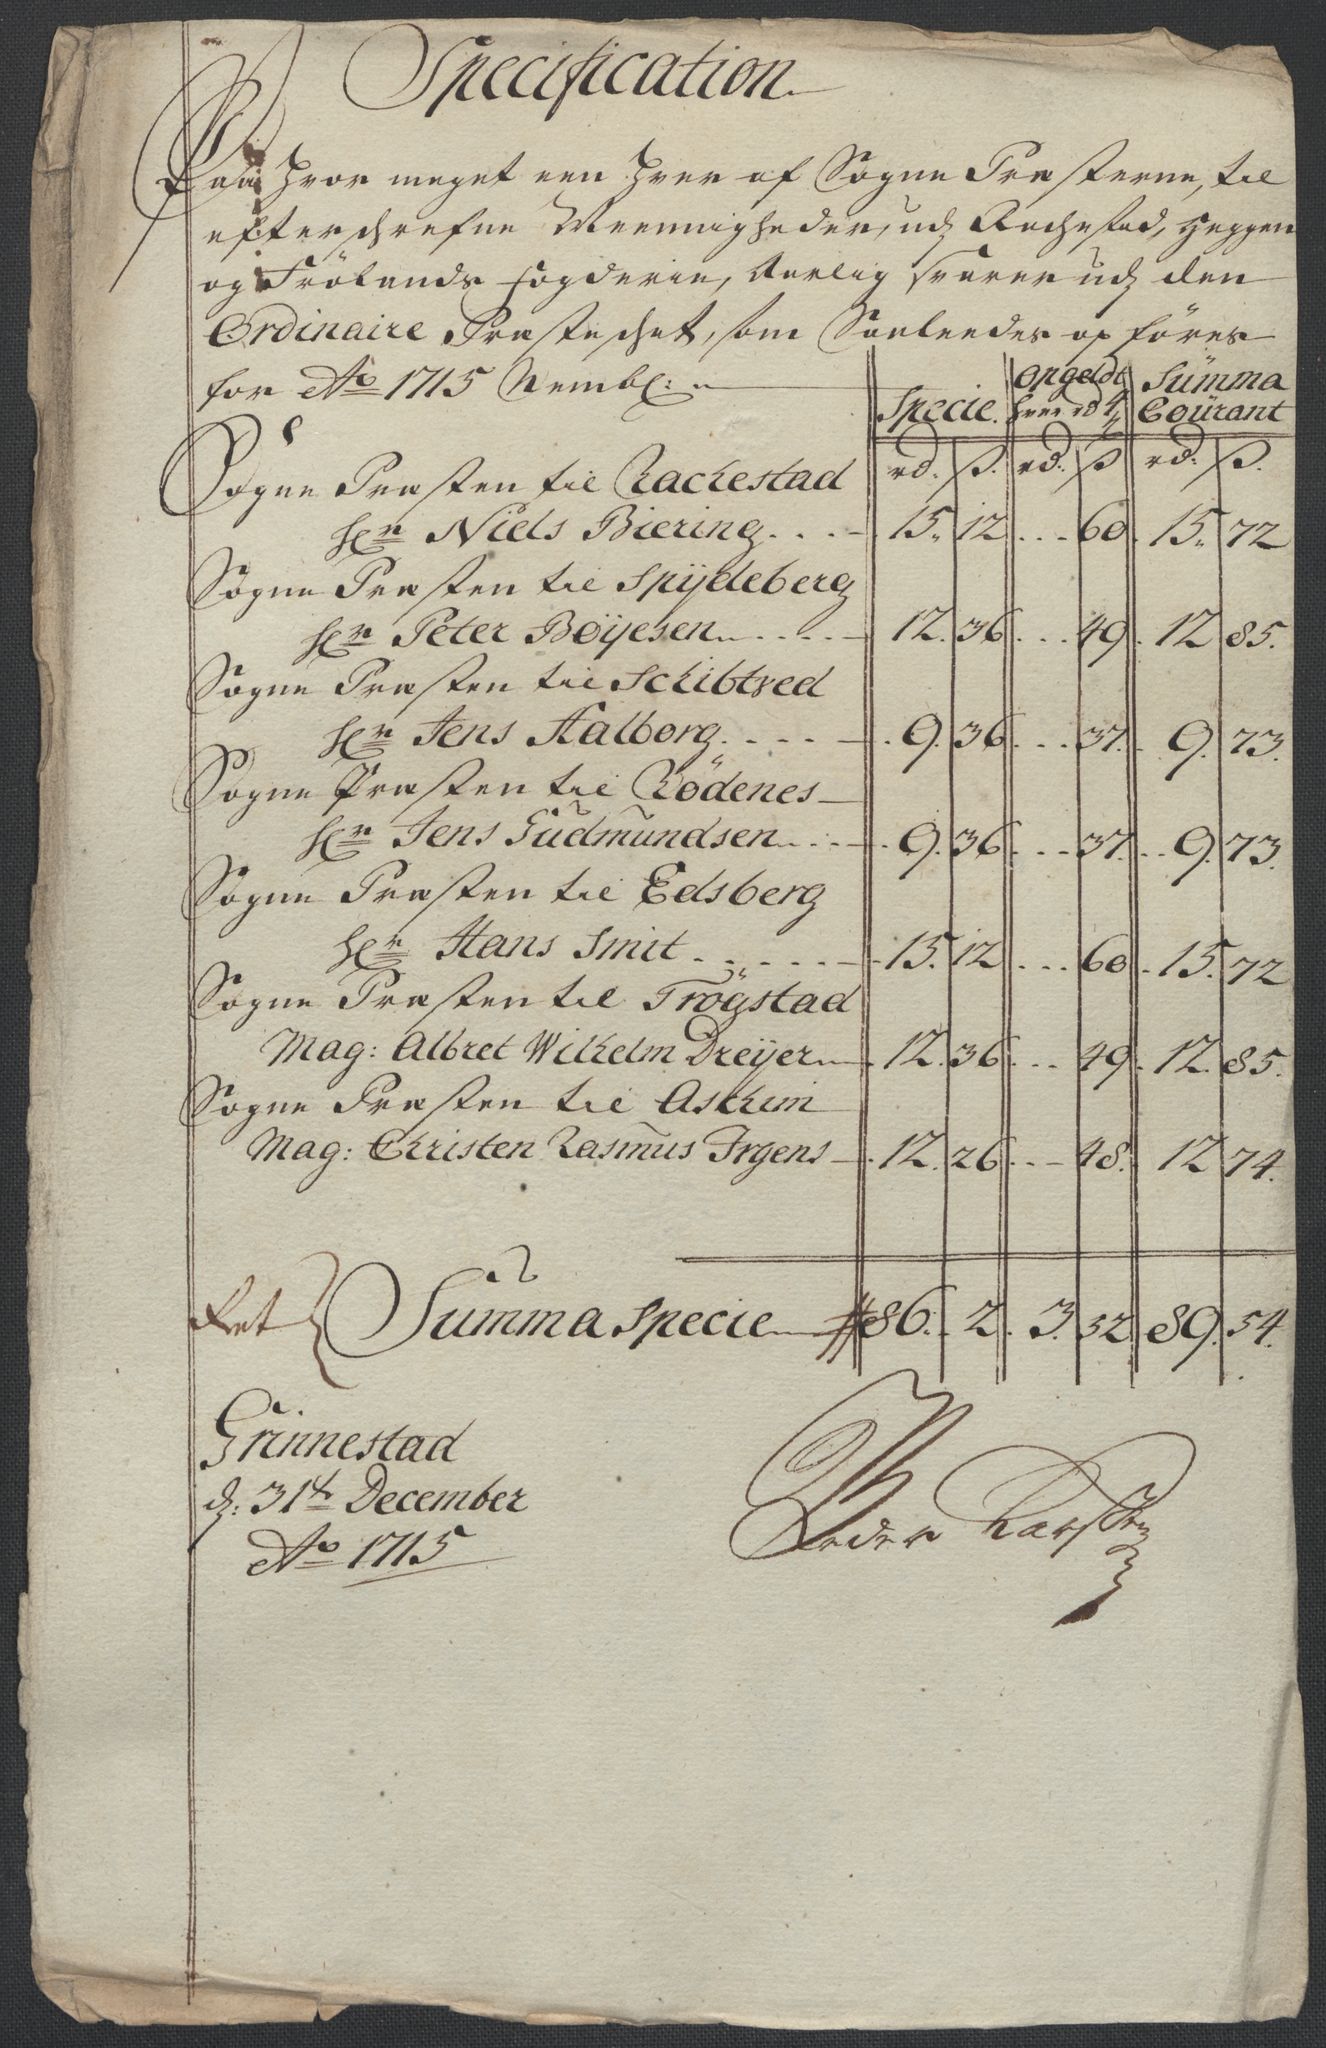 Specification
Paa hvor meget een hver af Sogne Præsterne, til
efterschrefne Meenigheder, udj Rachestad, Heggen
og Frölands fogderie, Aarlig svarer udj den
Ordinaire Præsteschat, som Saaleedes opföres
for Ao 1715 Nembl:
Specie. | opgeldt hver rd 4 ß | Summa Courant
rd: | ß. | rd: | ß | rd: | ß.
Sogne Præsten til Rachestad
Hr Niels Biering.... 15. 12 ... 60. 15. 72
Sogne Præsten til Spÿdeberg
Hr Peter Böÿesen..... 12. 36 ... 49. 12 85.
Sogne Præsten til Schibtved
Hr Jens Aalborg..... 9. 36 ... 37. 9. 73.
Sogne Præsten til Rödenes
Hr Jens Gudmundsen.... 9. 36 ... 37. 9. 73.
Sogne Præsten til Edsberg
Hr Hans Smit...... 15. 12 ... 60. 15. 72
Sogne Præsten til Trögstad
Mag: Albret Wilhelm Dreÿer. 12. 36 ... 49. 12. 85.
Sogne Præsten til Askim
Mag: Christen Rasmus Irgens. 12. 26 ... 48. 12 74.
Ret Summa Specie # 86. 2. 3. 52 89. 54.
Grinnestad
d: 31te December
Ao 1715
Peder Karsten